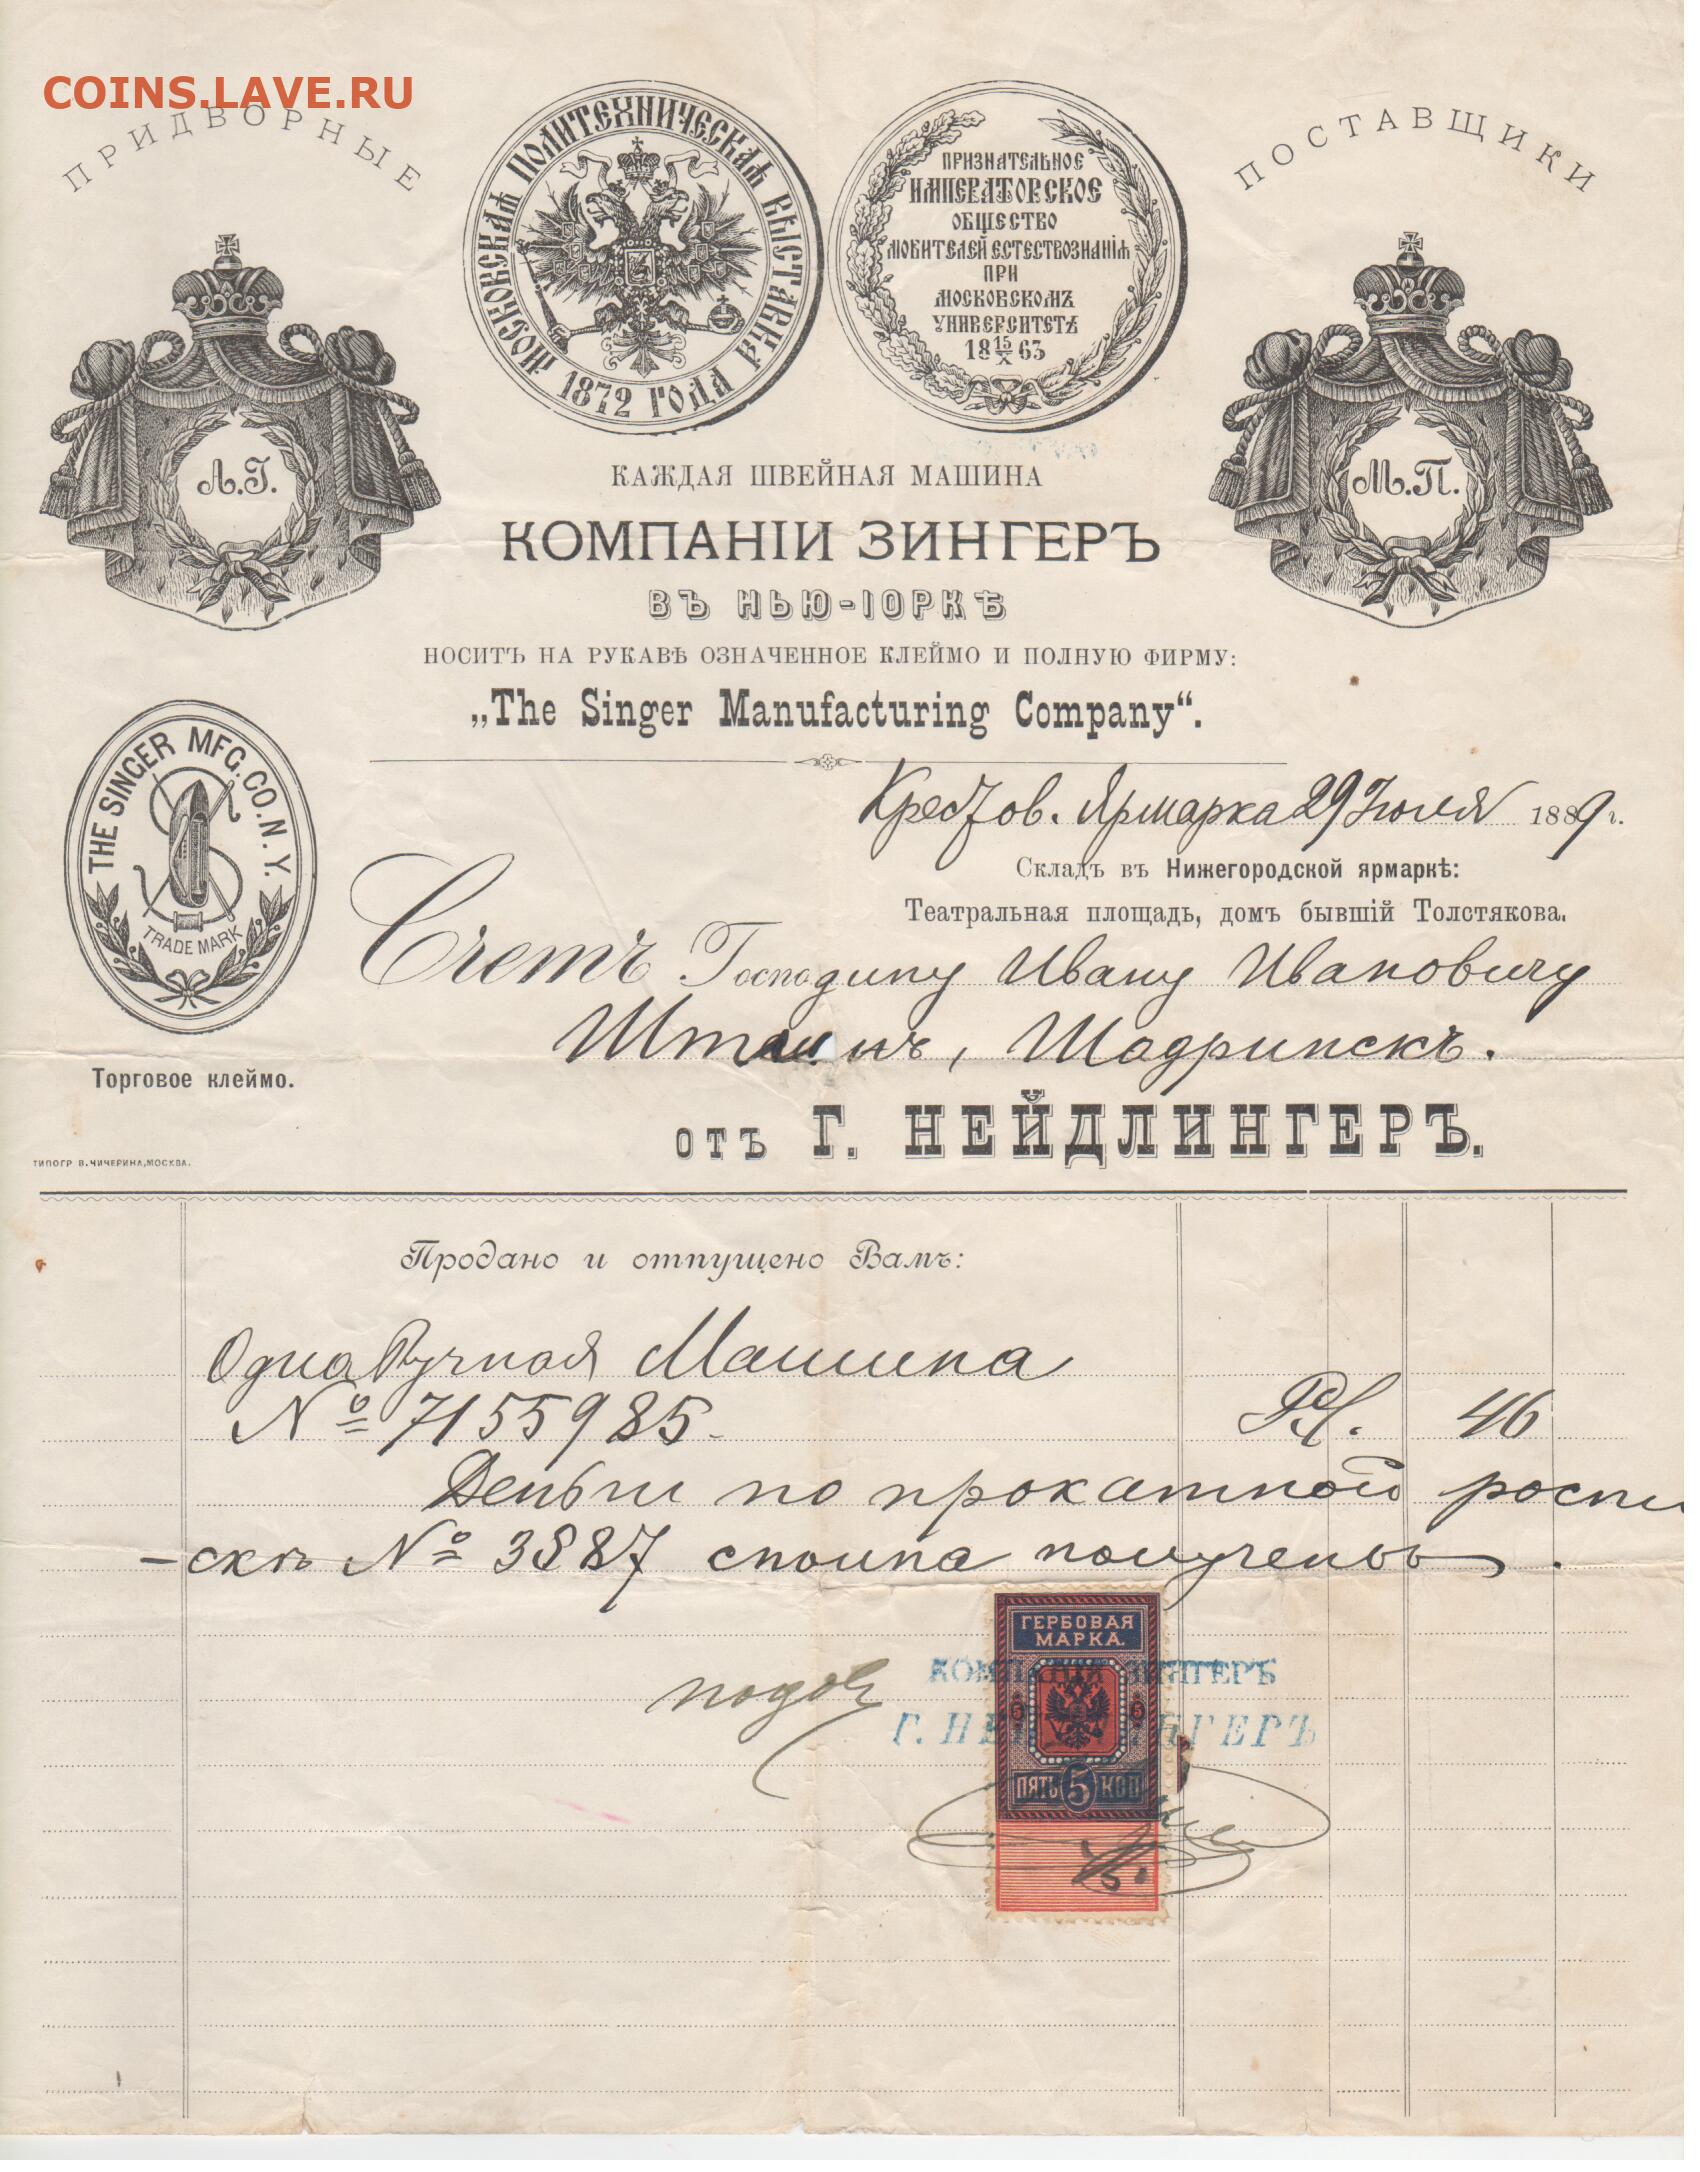 COINS.LAVE.RU
ПРИДВОРНЫЕ
ПОСТАВЩИКИ
МОСКОВСКАѦ ПОЛИТЕХНИЧЕСКАѦ ВЫСТАВКА
1872 ГОДА
ПРИЗНАТЕЛЬНОЕ
ИМПЕРАТОРСКОЕ
ОБЩЕСТВО
ЛЮБИТЕЛЕЙ ЕСТЕСТВОЗНАНІѦ
ПРИ
МОСКОВСКОМЪ
УНИВЕРСИТЕТѢ
18 15/X 63
А.І.
М.П.
КАЖДАЯ ШВЕЙНАЯ МАШИНА
КОМПАНІИ ЗИНГЕРЪ
ВЪ НЬЮ-ІОРКѢ
НОСИТЪ НА РУКАВѢ ОЗНАЧЕННОЕ КЛЕЙМО И ПОЛНУЮ ФИРМУ:
„The Singer Manufacturing Company“.
THE SINGER MFG. CO. N.Y.
TRADE MARK
Торговое клеймо.
Крестов. Ярмарка 29 Июля 1889 г.
Складъ въ Нижегородской ярмаркѣ:
Театральная площадь, домъ бывшій Толстякова.
Счетъ Господину Ивану Ивановичу
Шадринскъ.
отъ Г. НЕЙДЛИНГЕРЪ.
ТИПОГР В. ЧИЧЕРИНА, МОСКВА.
Продано и отпущено Вамъ:
Одна Ручная Машина
№ 7155985. Рл. 46
Деньги по прокатной роспи
-скѣ № 3887 сполна получены.
ГЕРБОВАЯ
МАРКА.
КОМПАНІИ ЗИНГЕРЪ
Г. НЕЙДЛИНГЕРЪ
5 5
ПЯТЬ 5 КОП